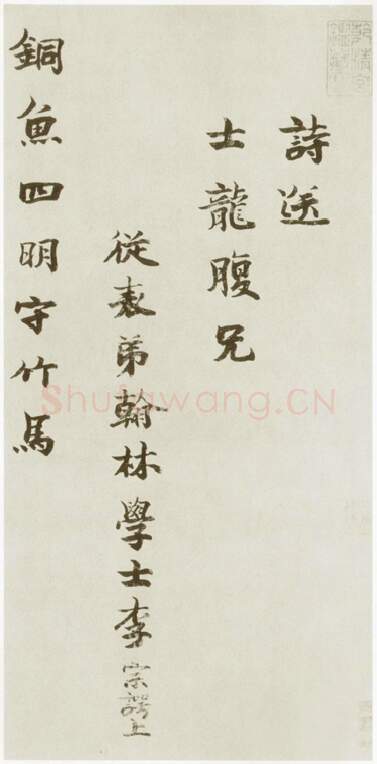 詩送
士龍腹兄
從表弟翰林學士李宗諤上
銅魚四明守竹馬
Shufawang.CN